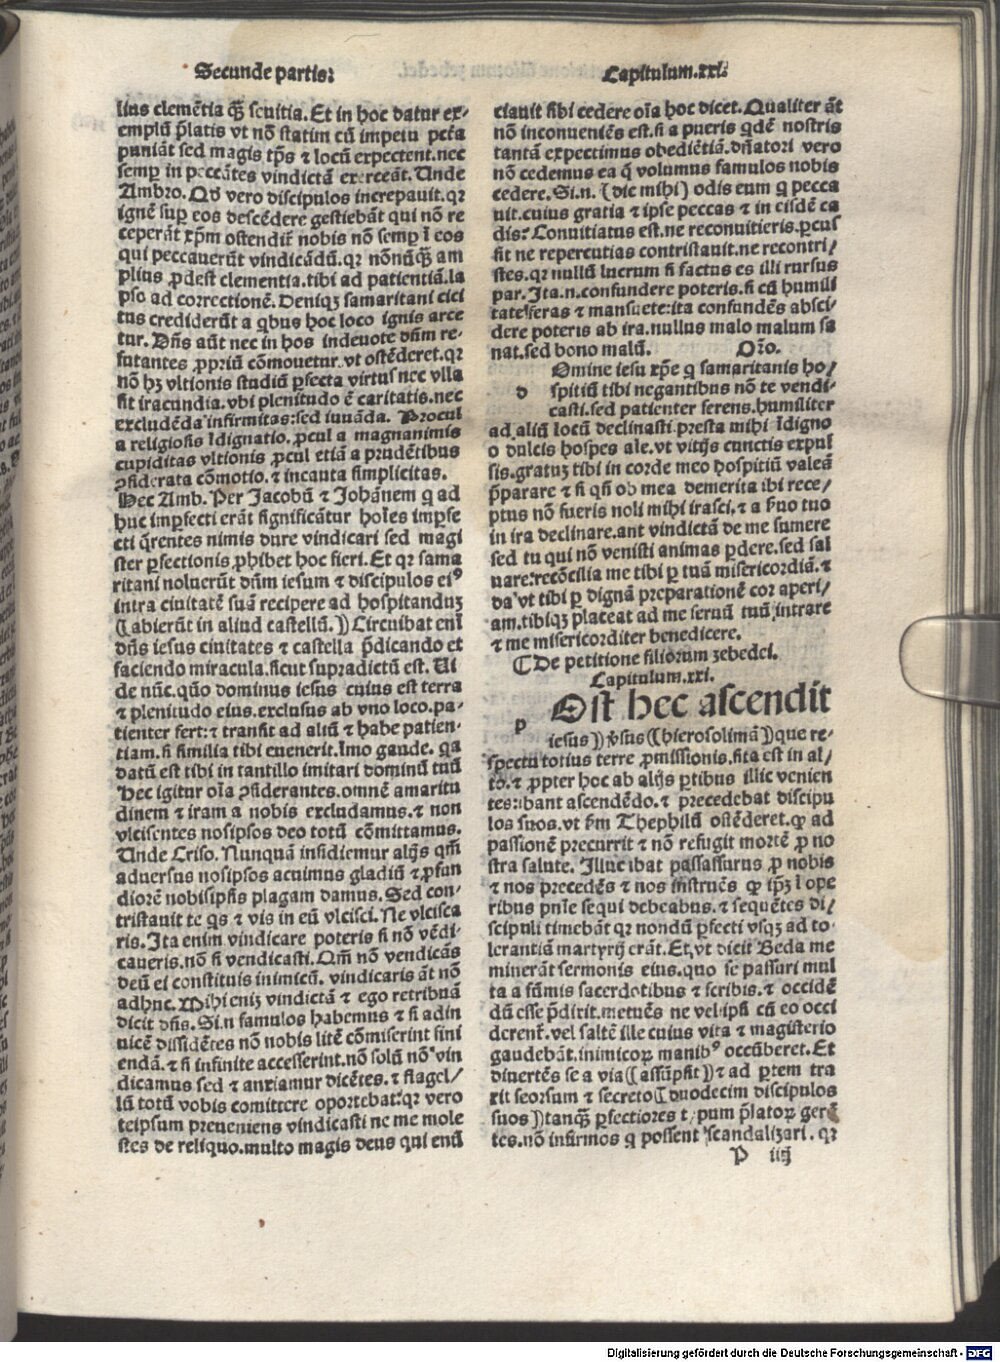 Secunde partis:
Capitulum.xxi.
lius clemētia q̄ꝫ seuitia. Et in hoc datur ex-
emplū p̄latis vt nō statim cū impetu pctā
puniāt sed magis tp̄s ⁊ locū expectent.nec
semꝑ in peccātes vindictā exerceāt. Unde
Ambro. Qd̄ vero discipulos increpauit.qꝛ
ignē suꝑ eos descēdere gestiebāt qui nō re
ceperāt xp̄m ostendit̄ nobis nō semꝑ ī eos
qui peccauerūt vindicādū.qꝛ nōnūq̄ꝫ am
plius ꝓdest clementia.tibi ad patientiā.la
pso ad correctionē. Deniqꝫ samaritani cici
tus crediderūt a qbus hoc loco ignis arce
tur. Dn̄s aūt nec in hos indeuote dn̄m re-
futantes ꝓpriū cōmouetur.vt ostēderet.qꝛ
nō hꝫ vltionis studiū ꝑfecta virtus nec vlla
fit iracundia.vbi plenitudo ē caritatis.nec
excludēda infirmitas:sed iuuāda. Procul
a religiosis īdignatio.ꝓcul a magnanimis
cupiditas vltionis ꝓcul etiā a prudētibus
ꝯsiderata cōmotio.⁊ incauta simplicitas.
Hec Amb. Per Jacobū ⁊ Johānem q ad
huc imꝑfecti erāt significātur hoīes imꝑfe
cti q̄rentes nimis dure vindicari sed magi
ster ꝑfectionis ꝓhibet hoc fieri. Et qꝛ sama
ritani noluerūt dn̄m iesum ⁊ discipulos eiꝰ
intra ciuitatē suā recipere ad hospitanduꝫ
(abierūt in aliud castellū.) Circuibat enī
dn̄s iesus ciuitates ⁊ castella p̄dicando et
faciendo miracula.sicut supradictū est. Ui
de nūc.quō dominus iesus cuius est terra
⁊ plenitudo eius.exclusus ab vno loco.pa-
tienter fert:⁊ transit ad aliū ⁊ habe patien-
tiam.si similia tibi euenerit. Imo gaude. qa
datū est tibi in tantillo imitari dominū tuū
Hec igitur oīa ꝯsiderantes.omnē amaritu
dinem ⁊ iram a nobis excludamus.⁊ non
vlciscentes nosipsos deo totū cōmittamus.
Unde Criso. Nunquā insidiemur alijs qm̄
aduersus nosipsos acuimus gladiū ⁊ ꝓfun
diorē nobisipsis plagam damus. Sed con-
tristauit te qs ⁊ vis in eū vlcisci. Ne vlcisca
ris. Ita enim vindicare poteris si nō vēdi-
caueris.nō si vendicasti. Qm̄ nō vendicās
deū ei constituis inimicū. vindicaris āt nō
adhuc. Mihi eniꝫ vindictā ⁊ ego retribuā
dicit dn̄s. Si.n famulos habemus ⁊ si adin
uicē dissidētes nō nobis litē cōmiserint fini
endā.⁊ si infinite accesserint.nō solū nō vin
dicamus sed ⁊ anxiamur dicētes.⁊ flagel/
lū totū vobis comittere oportebat:qꝛ vero
teipsum preueniens vindicasti ne me mole
stes de reliquo.multo magis deus qui enū
ciauit sibi cedere oīa hoc dicet. Qualiter āt
nō inconueniēs est.si a pueris qdē nostris
tantā expectimus obediētiā.dn̄atori vero
nō cedemus ea q̄ volumus famulos nobis
cedere. Si.n. (dic mihi) odis eum q pecca
uit.cuius gratia ⁊ ipse peccas ⁊ in eisdē ca
dis? Conuitiatus est.ne reconuitieris.ꝑcus
sit ne repercutias contristauit.ne recontri/
stes.qꝛ nullū lucrum si factus es illi rursus
par. Ita.n.confundere poteris.si cū humili
tate feras ⁊ mansuete:ita confundēs absci-
dere poteris ab ira.nullus malo malum sa
nat.sed bono malū. Orō.
Omine iesu xp̄e q samaritanis ho/
d spitiū tibi negantibus nō te vendi-
casti.sed patienter ferens.humiliter
ad aliū locū declinasti.presta mihi īdigno
o dulcis hospes ale.vt vitijs cunctis expul
sis.gratuꝫ tibi in corde meo hospitiū valeā
p̄parare ⁊ si qn̄ ob mea demerita ibi rece/
ptus nō fueris noli mihi irasci.⁊ a ẜuo tuo
in ira declinare.aut vindictā de me sumere
sed tu qui nō venisti animas ꝑdere.sed sal
uare:recōcilia me tibi ꝑ tuā misericordiā.⁊
da vt tibi ꝑ dignā preparationē cor aperi/
am.tibiqꝫ placeat ad me seruū tuū intrare
⁊ me misericorditer benedicere.
⸿De petitione filiorum zebedei.
Capitulum.xxi.
Ost hec ascendit
p iesus) v̓sus (hierosolimā) que re-
spectu totius terre ꝓmissionis.sita est in al/
to.⁊ ꝓpter hoc ab alijs ꝑtibus illic venien
tes:ibant ascendēdo.⁊ precedebat discipu
los suos.vt ẜm Thephilū ostēderet.ꝙ ad
passionē precurrit ⁊ nō refugit mortē ꝓ no
stra salute. Illuc ibat passurus ꝓ nobis
⁊ nos precedēs ⁊ nos instruēs ꝙ ip̄ꝫ ī ope
ribus pn̄ie sequi debeabus.⁊ sequētes di/
scipuli timebāt qꝛ nondū ꝑfecti vsqꝫ ad to-
lerantiā martyrij erāt. Et,vt dicit Beda me
minerāt sermonis eius.quo se passurū mul
ta a sūmis sacerdotibus ⁊ scribis.⁊ occidē
dū esse p̄dixit.metuēs ne vel ipsi cū eo occi
derent̄.vel saltē ille cuius vita ⁊ magisterio
gaudebāt.inimicoꝝ manibꝰ occūberet. Et
diuertēs se a via (assūpsit) ⁊ ad ꝑtem tra
xit seorsum ⁊ secreto (duodecim discipulos
suos) tanqꝫ ꝑfectiores pum p̄latoꝝ gerē
tes.nō infirmos q possent scandalizari. qꝛ
P iiij
Digitalisierung gefördert durch die Deutsche Forschungsgemeinschaft - DFG